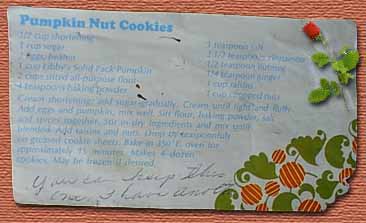 Pumpkin Nut Cookies
1/2 cup shortening
1 cup sugar
2 eggs beaten
1 cup Libby's Solid Pack Pumpkin
2 cups sifted all-purpose flour
4 teaspoons baking powder
1 teaspoon salt
2 1/2 teaspoons cinnamon
1/2 teaspoon nutmeg
1/4 teaspoon ginger
1 cup raisins
1 cup chopped nuts
Cream shortening; add sugar gradually. Cream until light and fluffy.
Add eggs and pumpkin, mix well. Sift flour, baking powder, salt
and spices together. Stir in dry ingredients and mix until
blended. Add raisins and nuts. Drop by teaspoonfuls
on greased cookie sheets. Bake in 350°F. oven for
approximately 15 minutes. Makes 4 dozen
cookies. May be frozen if desired.
You can keep this
one, I have another